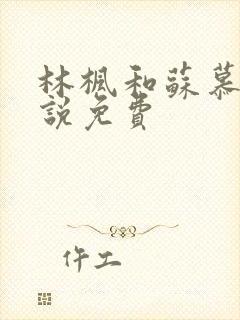 林楓和蘇慕
說免費
仵工